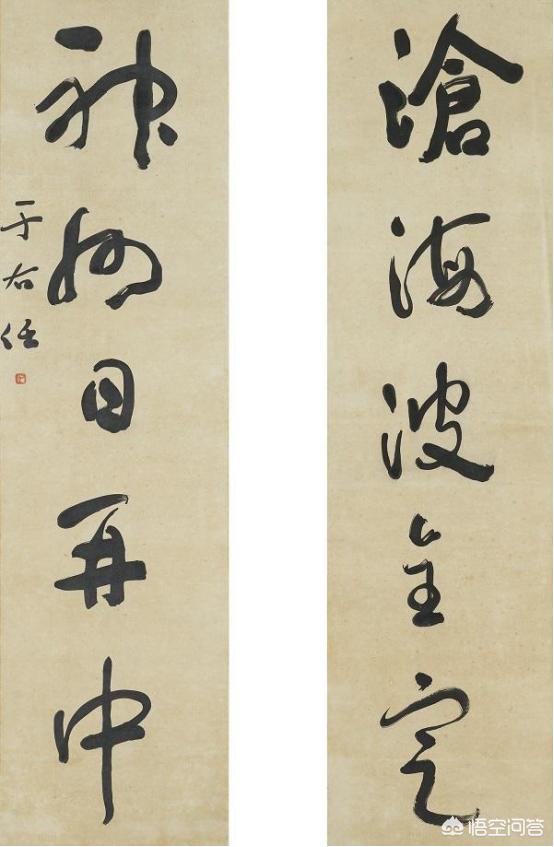 滄海波全定
神州日再中
于右任
悟空问答